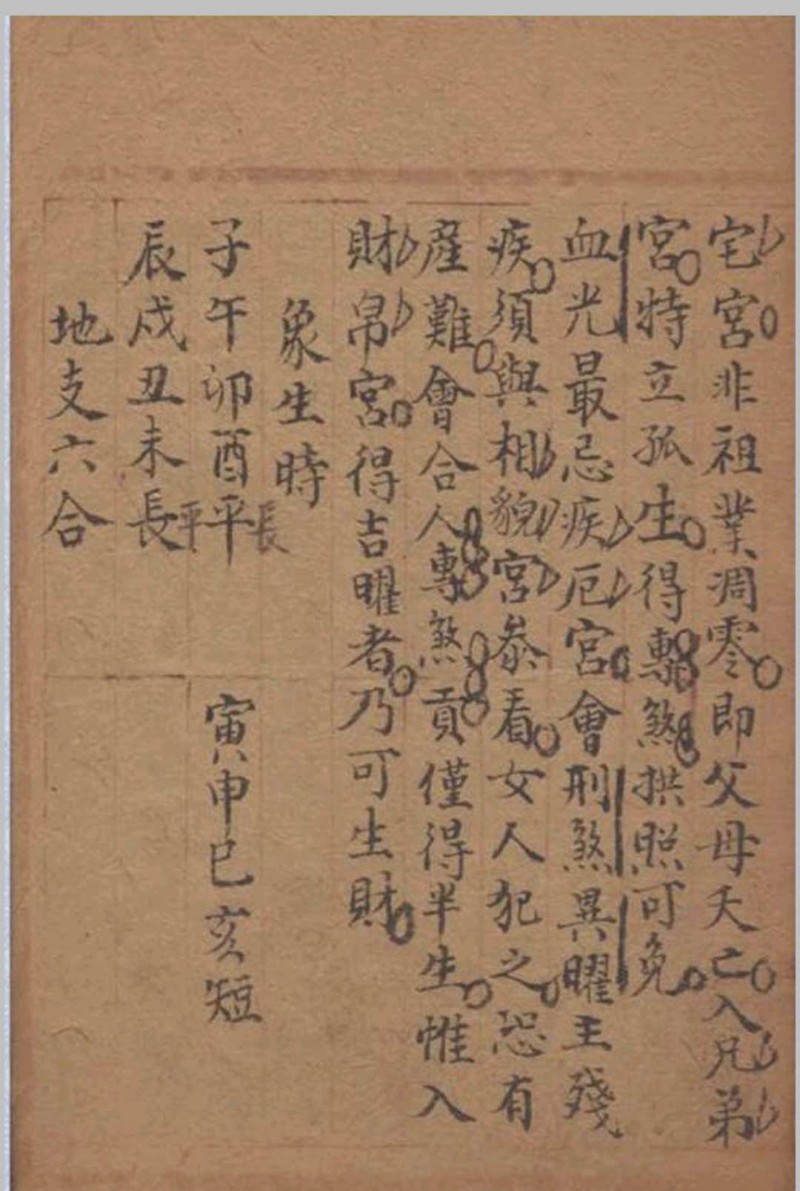 宅宮非祖業凋零即父母夭亡入兄弟
宮特立孤生得專煞拱照可免
血光最忌疾厄宮會刑煞異曜主殘
疾須與相貌宮叅看女人犯之恐有
産難會合人專煞貢僅得半生惟入
財帛宮得吉曜者乃可生財
象生時
子午卯酉平長 寅申巳亥短
辰戍丑未長平
地支六合